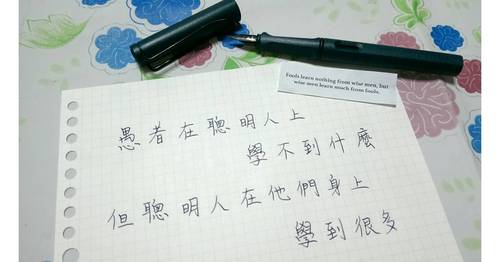 Fools learn nothing from wise men, but
wise men learn much from fools.
愚者在聰明人上
學不到什麼
但聰明人在他們身上
學到很多